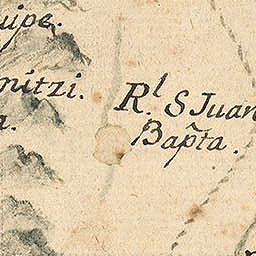 uipe.
nitzi.
a.
R.l S Juan
Bap̃ta.